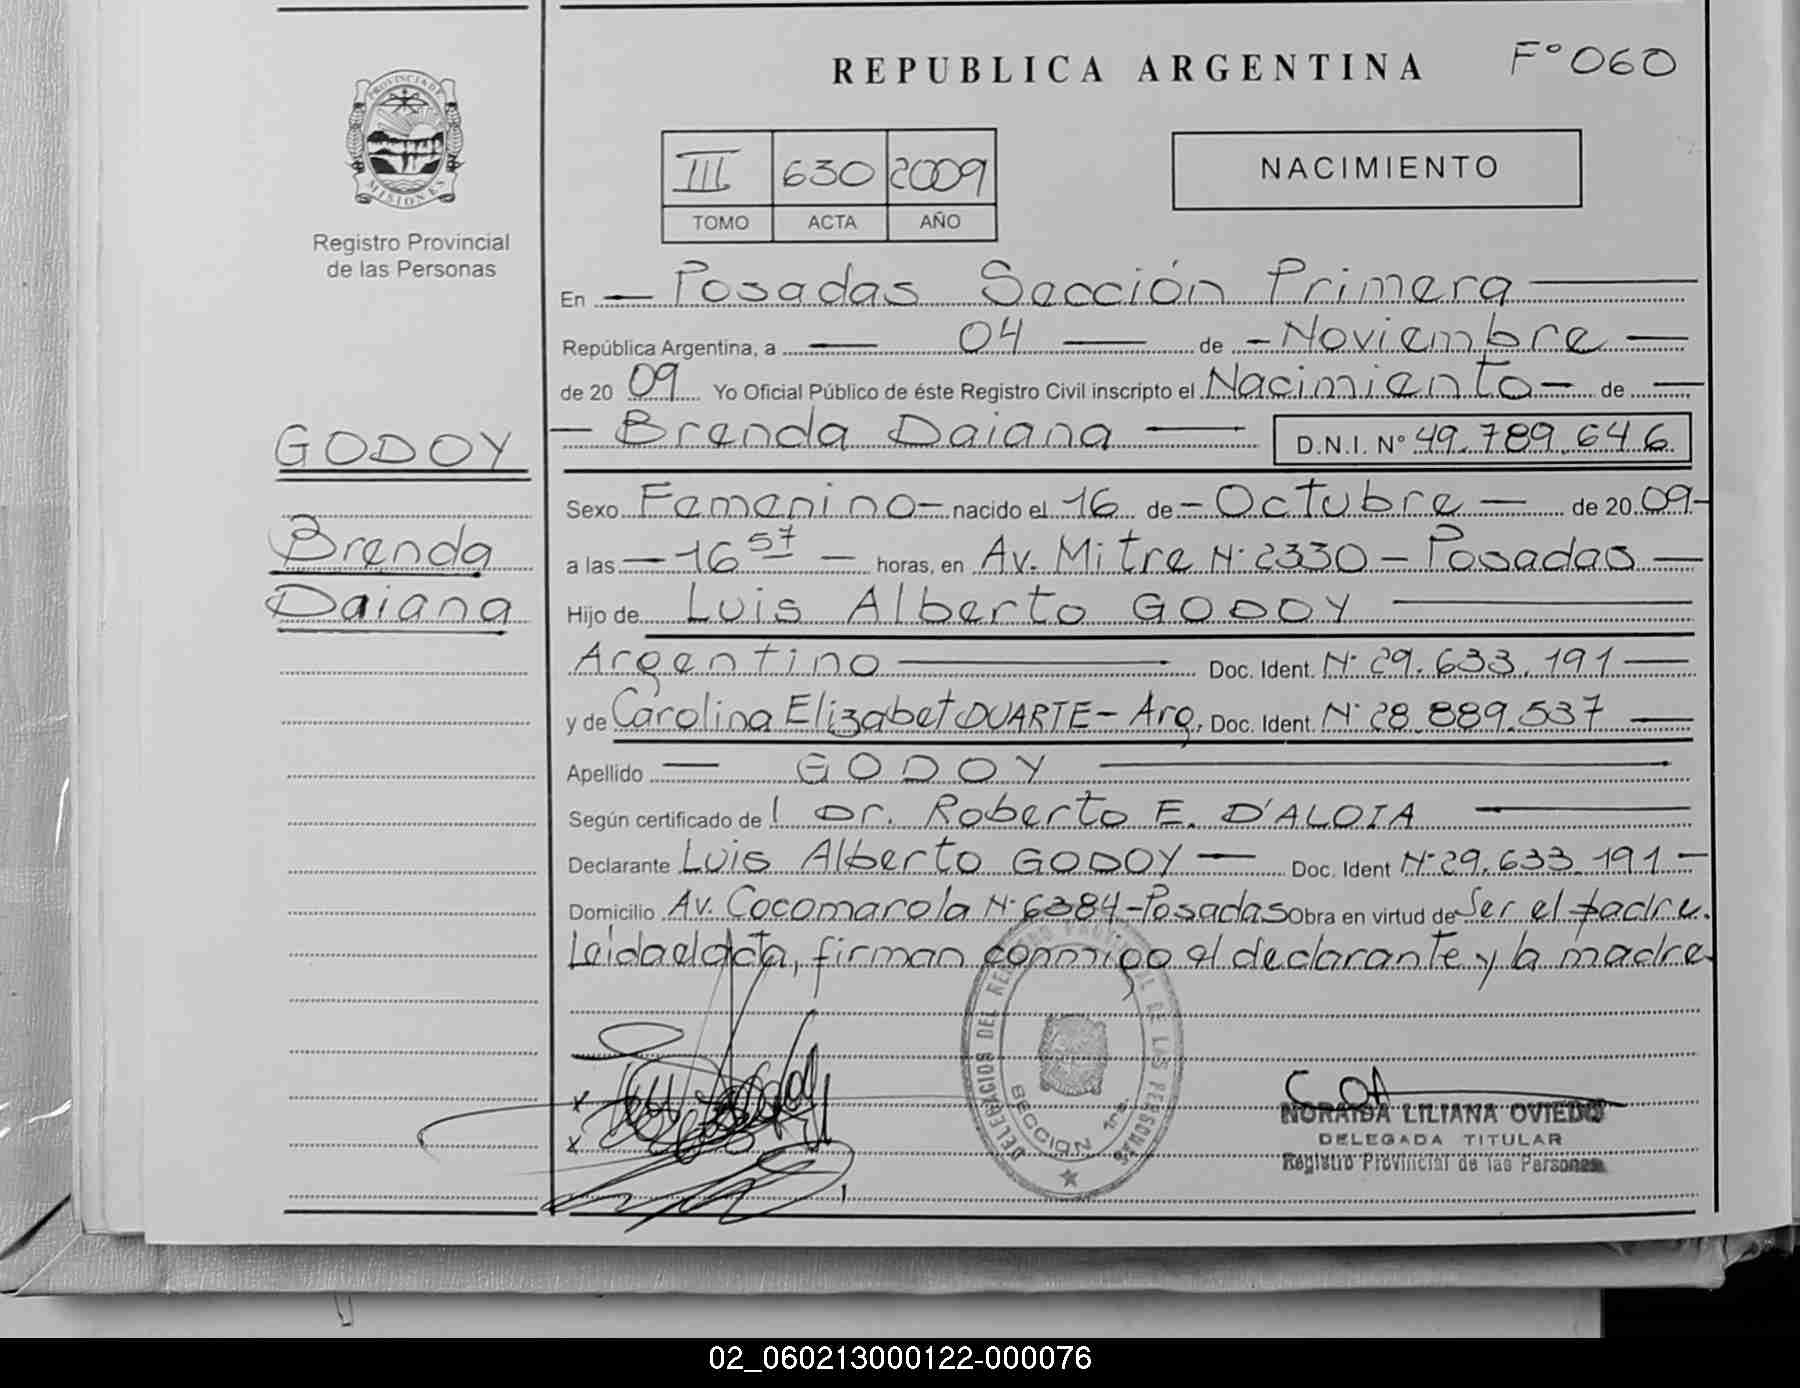 REPUBLICA ARGENTINA
F° 060
PROVINCIA DE MISIONES
Registro Provincial
de las Personas
III 630 2009
TOMO ACTA AÑO
NACIMIENTO
En Posadas Sección Primera
República Argentina, a 04 de Noviembre
de 20 09 Yo Oficial Público de éste Registro Civil inscripto el Nacimiento de
Brenda Daiana D.N.I. N° 49.789.646
GODOY
Brenda
Daiana
Sexo Femenino nacido el 16 de Octubre de 20 09
a las 16 57 horas, en Av. Mitre N° 2330 - Posadas
Hijo de Luis Alberto GODOY
Argentino Doc. Ident. N° 29.633.191
y de Carolina Elizabet DUARTE - Arg. Doc. Ident. N° 28.889.537
Apellido GODOY
Según certificado de l Dr. Roberto E. D'ALOIA
Declarante Luis Alberto GODOY Doc. Ident N° 29.633.191
Domicilio Av. Cocomarola N° 6384 - Posadas Obra en virtud de Ser el padre.
Leida el acta, firman conmigo el declarante y la madre.
DELEGACIOS DEL REGISTRO PROVINCIAL DE LAS PERSONAS
SECCION 1ra.
x
x
NORAIDA LILIANA OVIEDO
DELEGADA TITULAR
Registro Provincial de las Personas
02_060213000122-000076